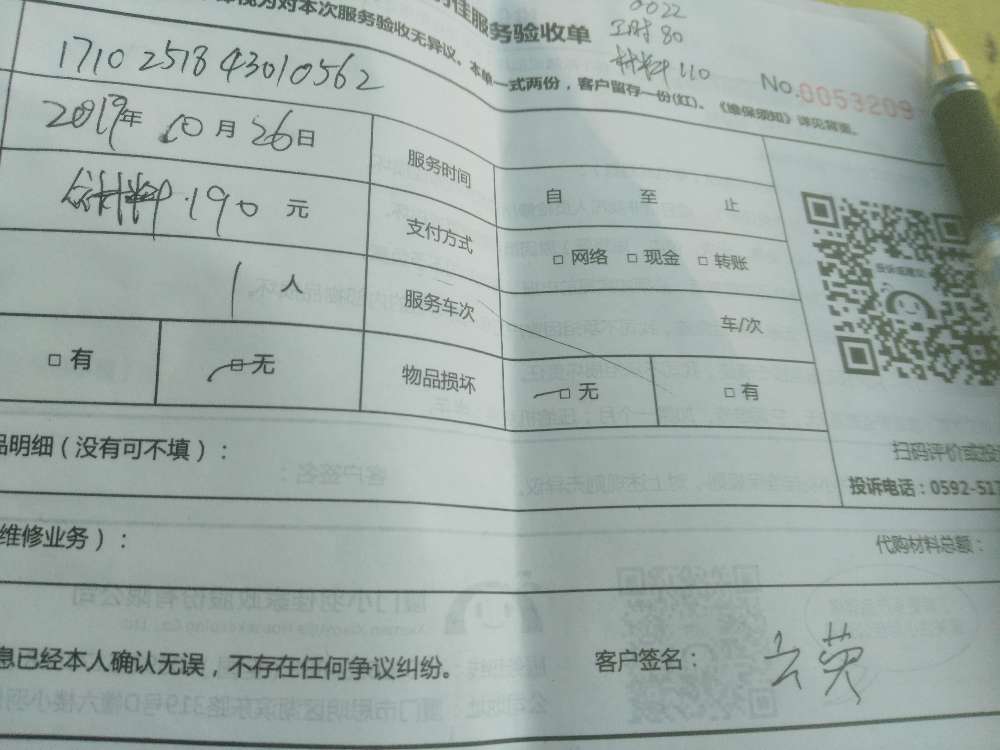 住服务验收单
0022
工时 80
材料 110
视为对本次服务验收无异议。本单一式两份，客户留存一份(红)。《维保须知》详见背面。
No.0053209
1710251843010562
2019年 10月 26日
服务时间
自 至 止
材料 190 元
支付方式
□ 网络 □ 现金 □ 转账
1 人
服务车次
车/次
□ 有 □ 无
物品损坏
□ 无 □ 有
品明细（没有可不填）：
扫码评价或投
投诉电话：0592-517
维修业务）：
代购材料总额：
息已经本人确认无误，不存在任何争议纠纷。
客户签名：
云英